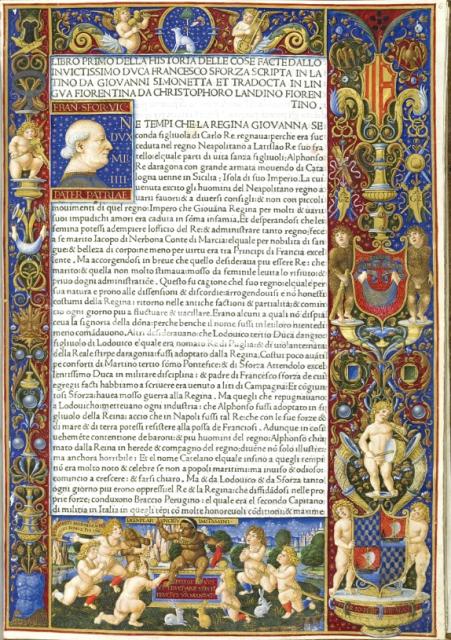 LIBRO PRIMO DELLA HISTORIA DELLE COSE FACTE DALLO
INVICTISSIMO DVCA FRANCESCO SFORZA SCRIPTA IN LA
TINO DA GIOVANNI SIMONETTA ET TRADOCTA IN LIN
GVA FIORENTINA DA CHRISTOPHORO LANDINO FIOREN
TINO .
FRAN·SFOR·VIC
DVX
MLI
IIII
PATER PATRIAE
NE TEMPI CHE LA REGINA GIOVANNA SE
conda figliuola di Carlo Re regnaua: perche era suc
ceduta nel regno Neapolitano a Latislao Re suo fra
tello elquale parti di uita sanza figliuoli: Alphonso
Re daragona con grande armata mouendo di Cata
logna uenne in Sicilia: Isola di suo Imperio. La cui
uenuta excito gli huomini del Neapolitano regno a
uarii fauori: & a diuersi consigli: & non con piccoli
mouimenti di quel regno: Impero che Giouāna Regina per molti & uarii
suoi impudichi amori era caduta in sōma infamia. Et desperandosi che lei
femina potessi adempiere lofficio del Re: & administrare tanto regno: fece
a se marito Iacopo di Nerbona Conte di Marcia: elquale per nobilita di san
gue: & belleza di corpo: ne meno per uirtu era tra Principi di Francia excel
lente . Ma accorgendosi in breue che quello desideraua piu essere Re: che
marito: & quella non molto stimaua: mosso da feminile leuita lo rifiuto: &
priuo dogni administratiōe . Questo fu cagione chel suo regno: elquale per
sua natura e prono alle dissensioni & discordie: arrogendouisi e nō honesti
costumi della Regina: ritorno nelle antiche factioni & partialita: & comin
cio ogni giorno piu a fluctuare & uacillare. Erano alcuni a quali nō dispia
ceua la signoria della dōna: perche benche il nome fussi in lei: loro niente di
meno comādauono. Altri desiderauano: che Lodouico tertio Duca dangio:
figliuolo di Lodouico
della Reale stirpe daragonia: fussi adoptato dalla Regina. Costui poco auāti
pe conforti di Martino tertio sōmo Pontefice: & di Sforza Attendolo excel
lentissimo Duca in militare disciplina : & padre di Francesco sforza de cui
egregii facti habbiamo a scriuere era uenuto a liti di Campagna: Et cōgiun
tosi Sforza hauea mosso guerra alla Regina . Ma quegli che repugnauano
a Lodouico: metteuano ogni industria : che Alphonso fussi adoptato in fi
gliuolo della Reina: accio che in Napoli fussi tal Re: che con le sue forze &
di mare & di terra potessi resistere alla possa de Franciosi . Adunque in cosi
uehemēte contentione de baroni: & piu huomini del regno: Alphonso chia
mato dalla Reina in herede & compagno del regno: diuēne nō solo illustre:
ma anchora horribile : Et el nome Catelano elquale insino a quegli tempi
nō era molto noto & celebre se non a popoli maritimi: ma inuiso & odioso:
comincio a crescere: & farsi chiaro . Ma da Lodouico & da Sforza tanto
ogni giorno piu erono oppressi el Re & la Regina: che diffidādosi nelle pro
prie forze; conduxono Braccio Perugino : el quale era el secondo Capitano
di militia in Italia in quegli tēpi cō molte honoreuoli cōditioni: & maxime